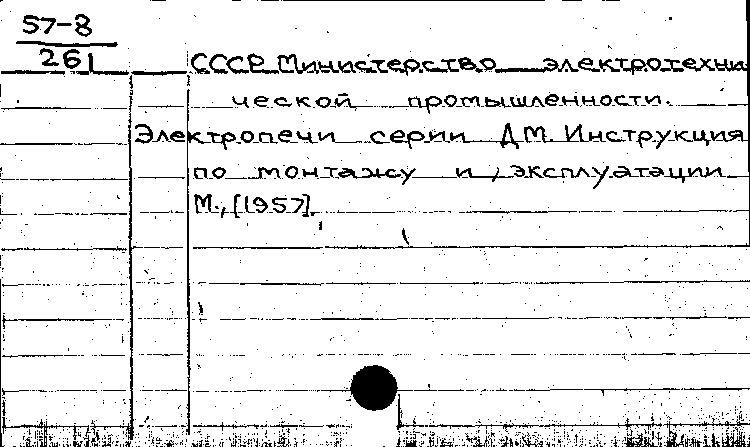 57-8
261
СССР. Министерство электротехни
ческой промышленности.
Электропечи серии ДМ. Инструкция
по монтажу и эксплуатации
М., [1957].